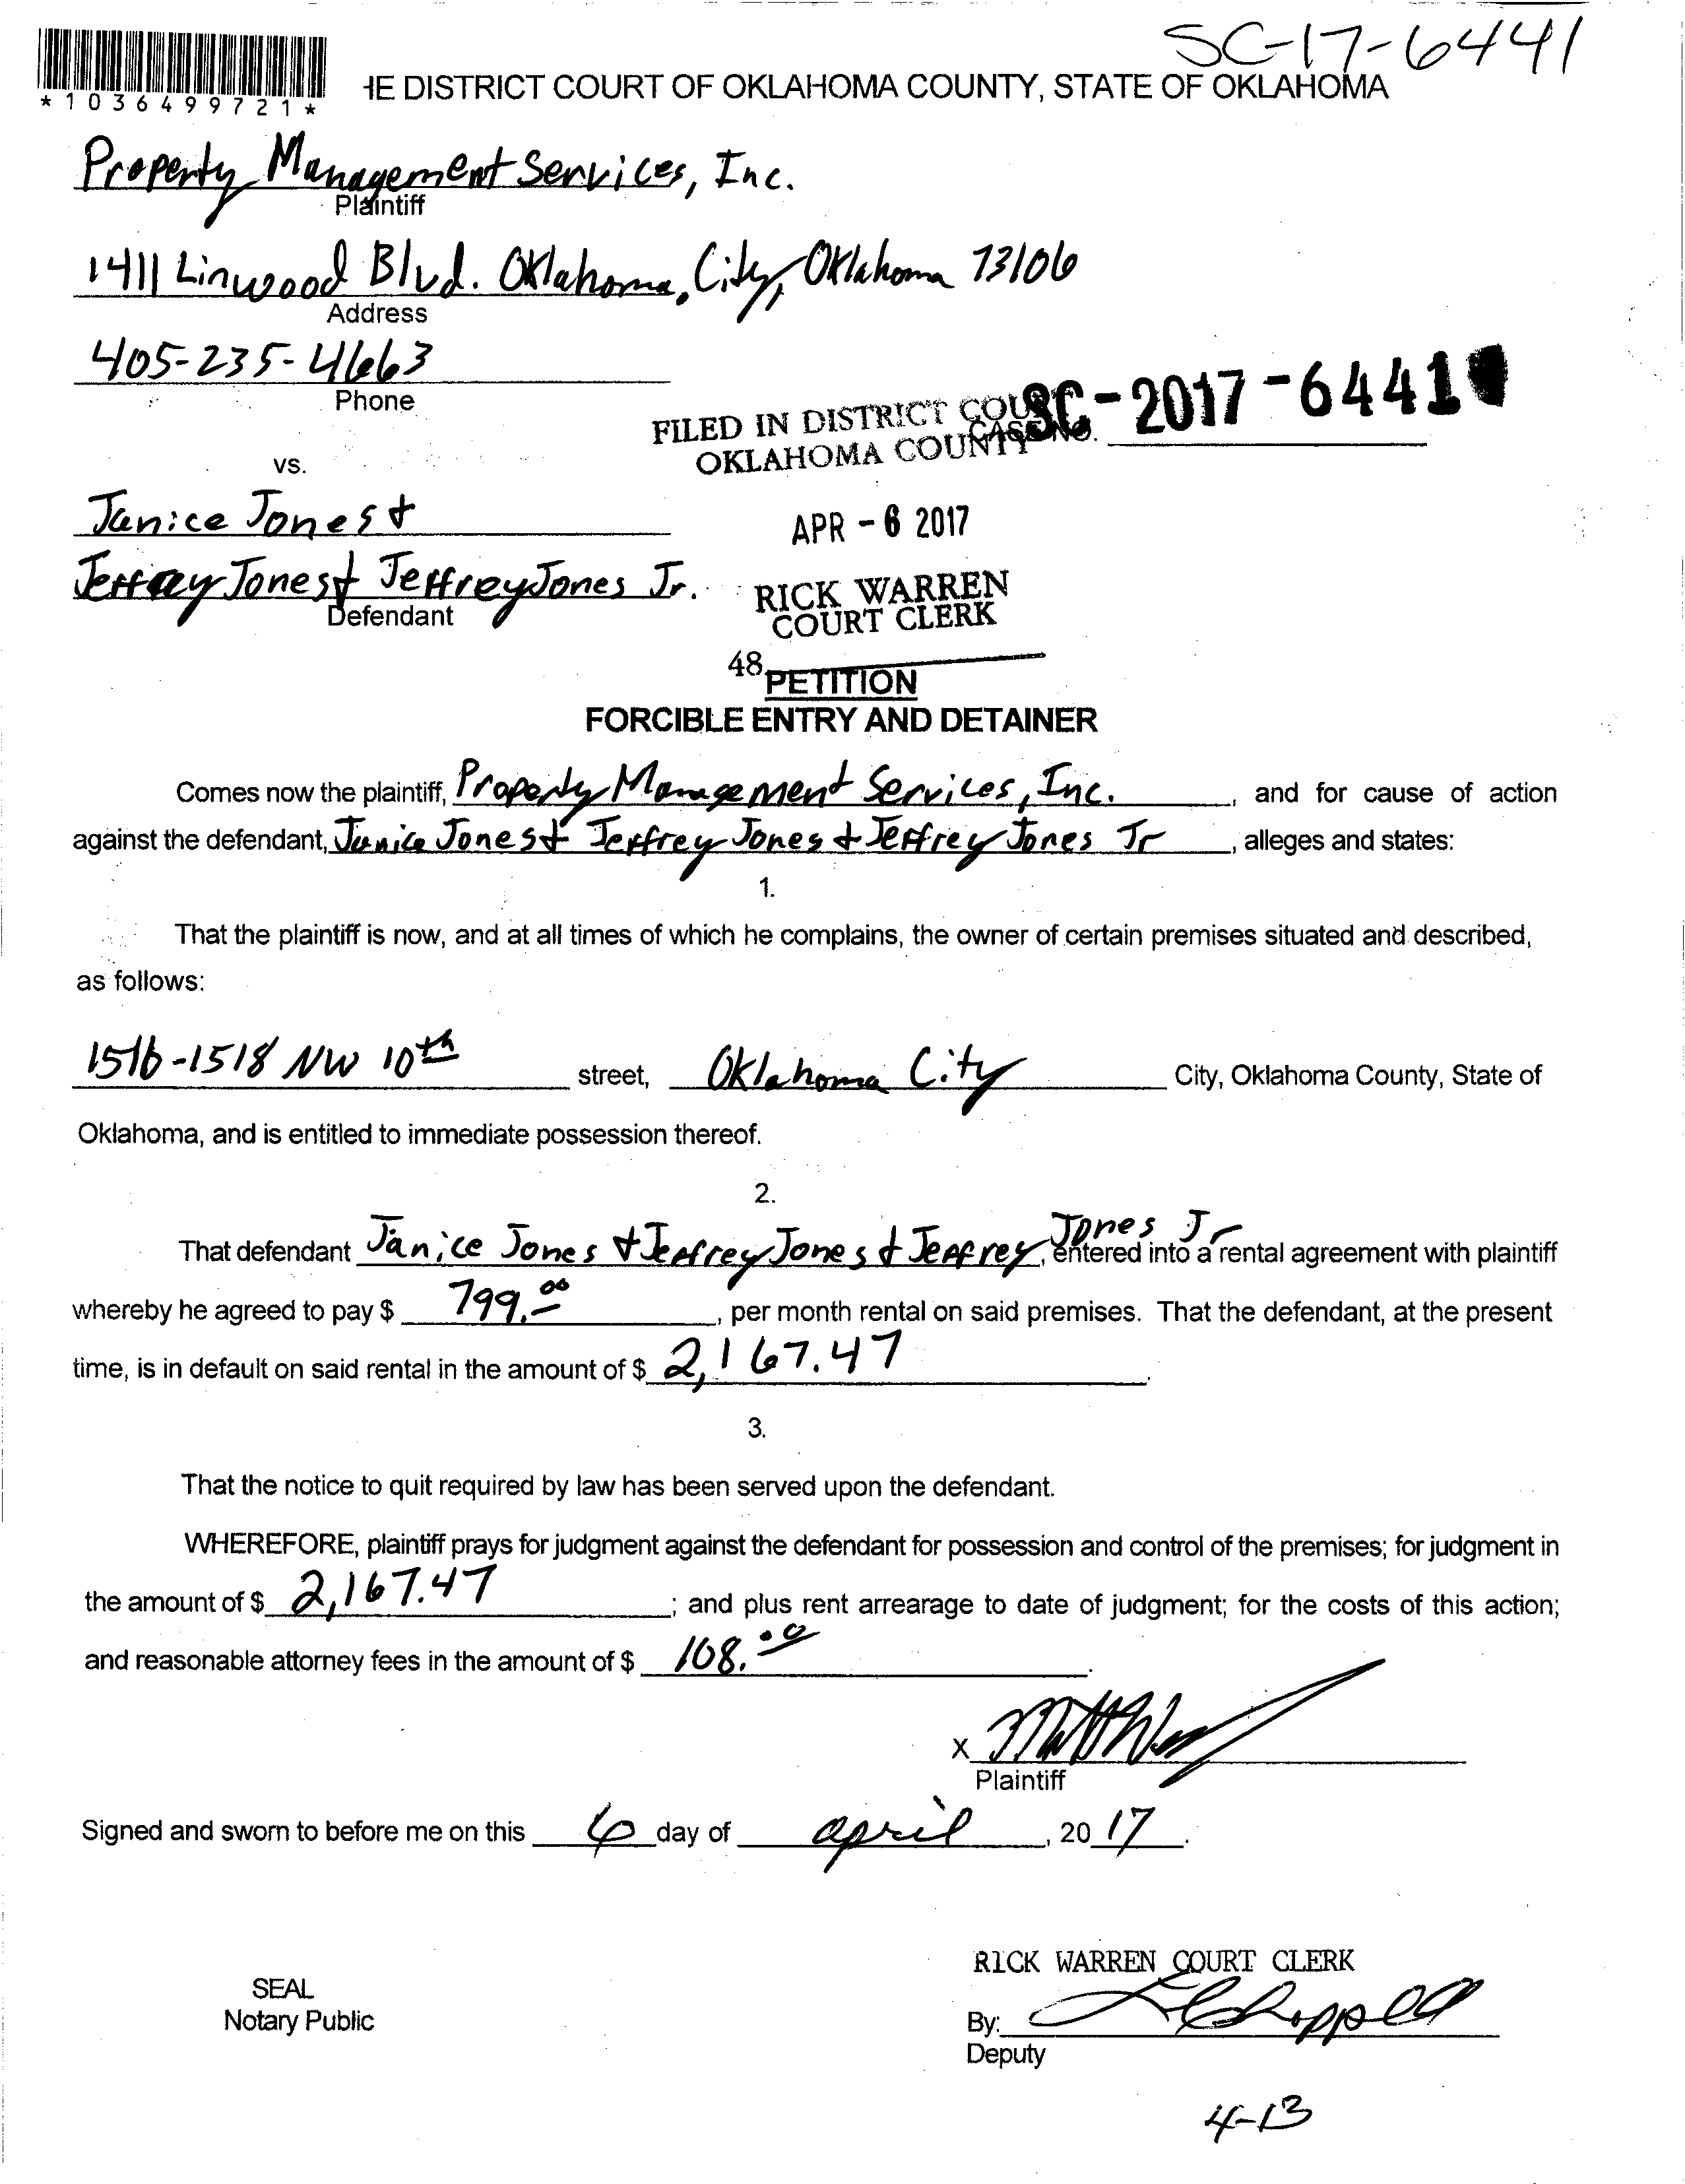 SC-17-6441
*1036499721*
HE DISTRICT COURT OF OKLAHOMA COUNTY, STATE OF OKLAHOMA
Property Management Services, Inc.
Plaintiff
1411 Linwood Blvd. Oklahoma, City, Oklahoma 73106
Address
405-235-4663
Phone
FILED IN DISTRICT COURT
OKLAHOMA COUNTY
CASE NO. SC-2017-6441
vs.
Janice Jones +
Jeffrey Jones + Jeffrey Jones Jr.
Defendant
APR - 6 2017
RICK WARREN
COURT CLERK
48
PETITION
FORCIBLE ENTRY AND DETAINER
Comes now the plaintiff, Property Management Services, Inc., and for cause of action
against the defendant, Janice Jones + Jeffrey Jones + Jeffrey Jones Jr, alleges and states:
1.
That the plaintiff is now, and at all times of which he complains, the owner of certain premises situated and described,
as follows:
1516-1518 NW 10th street, Oklahoma City City, Oklahoma County, State of
Oklahoma, and is entitled to immediate possession thereof.
2.
That defendant Janice Jones + Jeffrey Jones + Jeffrey Jones Jr, entered into a rental agreement with plaintiff
whereby he agreed to pay $ 799.00, per month rental on said premises. That the defendant, at the present
time, is in default on said rental in the amount of $ 2,167.47.
3.
That the notice to quit required by law has been served upon the defendant.
WHEREFORE, plaintiff prays for judgment against the defendant for possession and control of the premises; for judgment in
the amount of $ 2,167.47; and plus rent arrearage to date of judgment; for the costs of this action;
and reasonable attorney fees in the amount of $ 108.00.
X
Plaintiff
Signed and sworn to before me on this 6 day of april, 2017.
RICK WARREN COURT CLERK
SEAL
Notary Public
By:
Deputy
4-13